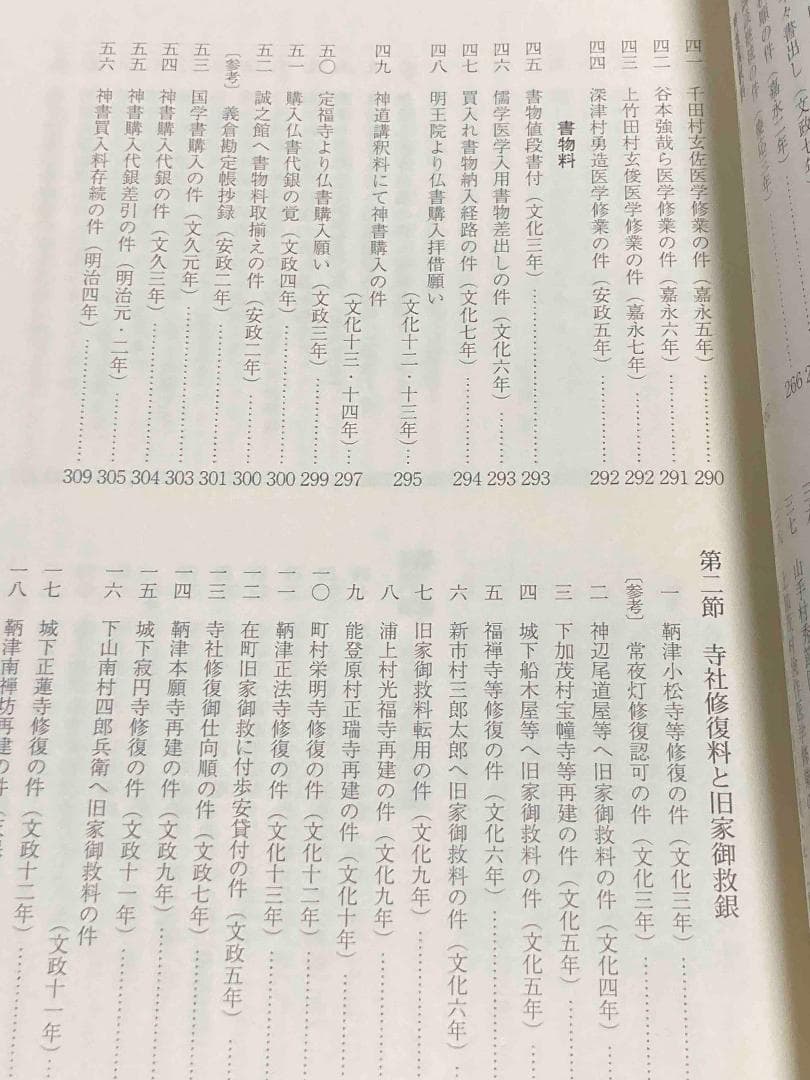 四一 千田村玄佐医学修業の件（嘉永五年）……………290
四二 谷本強哉ら医学修業の件（嘉永六年）……………291
四三 上竹田村玄俊医学修業の件（嘉永七年）…………292
四四 深津村勇造医学修業の件（安政五年）……………292
書物料
四五 書物値段書付（文化三年）……………293
四六 儒学医学入用書物差出しの件（文化六年）…………293
四七 買入れ書物納入経路の件（文化七年）……………294
四八 明王院より仏書購入拝借願い
（文化十二・十三年）……………295
四九 神道講釈料にて神書購入の件
（文化十三・十四年）…297
五〇 定福寺より仏書購入願い（文政三年）……………299
五一 購入仏書代銀の覚（文政四年）……………300
五二 誠之館へ書物料取揃えの件（安政二年）…………300
〔参考〕 義倉勘定帳抄録（安政二年）……………301
五三 国学書購入の件（文久元年）……………303
五四 神書購入代銀の件（文久三年）……………304
五五 神書購入代銀差引の件（明治元・二年）…………305
五六 神書買入料存続の件（明治四年）……………309
第二節 寺社修復料と旧家御救銀
一 鞆津小松寺等修復の件（文化三年）……………
〔参考〕 常夜灯修復認可の件（文化三年）……………
二 神辺尾道屋等へ旧家御救料の件（文化四年）………
三 下加茂村宝幢寺等再建の件（文化五年）……………
四 城下船木屋等へ旧家御救料の件（文化五年）………
五 福禅寺等修復の件（文化六年）……………
六 新市村三郎太郎へ旧家御救料の件（文化六年）……
七 旧家御救料転用の件（文化九年）……………
八 浦上村光福寺再建の件（文化九年）……………
九 能登原村正瑞寺再建の件（文化十年）……………
一〇 町村栄明寺修復の件（文化十二年）……………
一一 鞆津正法寺修復の件（文化十三年）……………
一二 在町旧家御救に付歩安貸付の件（文政五年）……
一三 寺社修復御仕向順の件（文政七年）……………
一四 鞆津本願寺再建の件（文政九年）……………
一五 城下寂円寺修復の件（文政十一年）……………
一六 下山南村四郎兵衛へ旧家御救料の件
（文政十一年）……
一七 城下正蓮寺修復の件（文政十二年）……………
一八 鞆津南禅坊再建の件